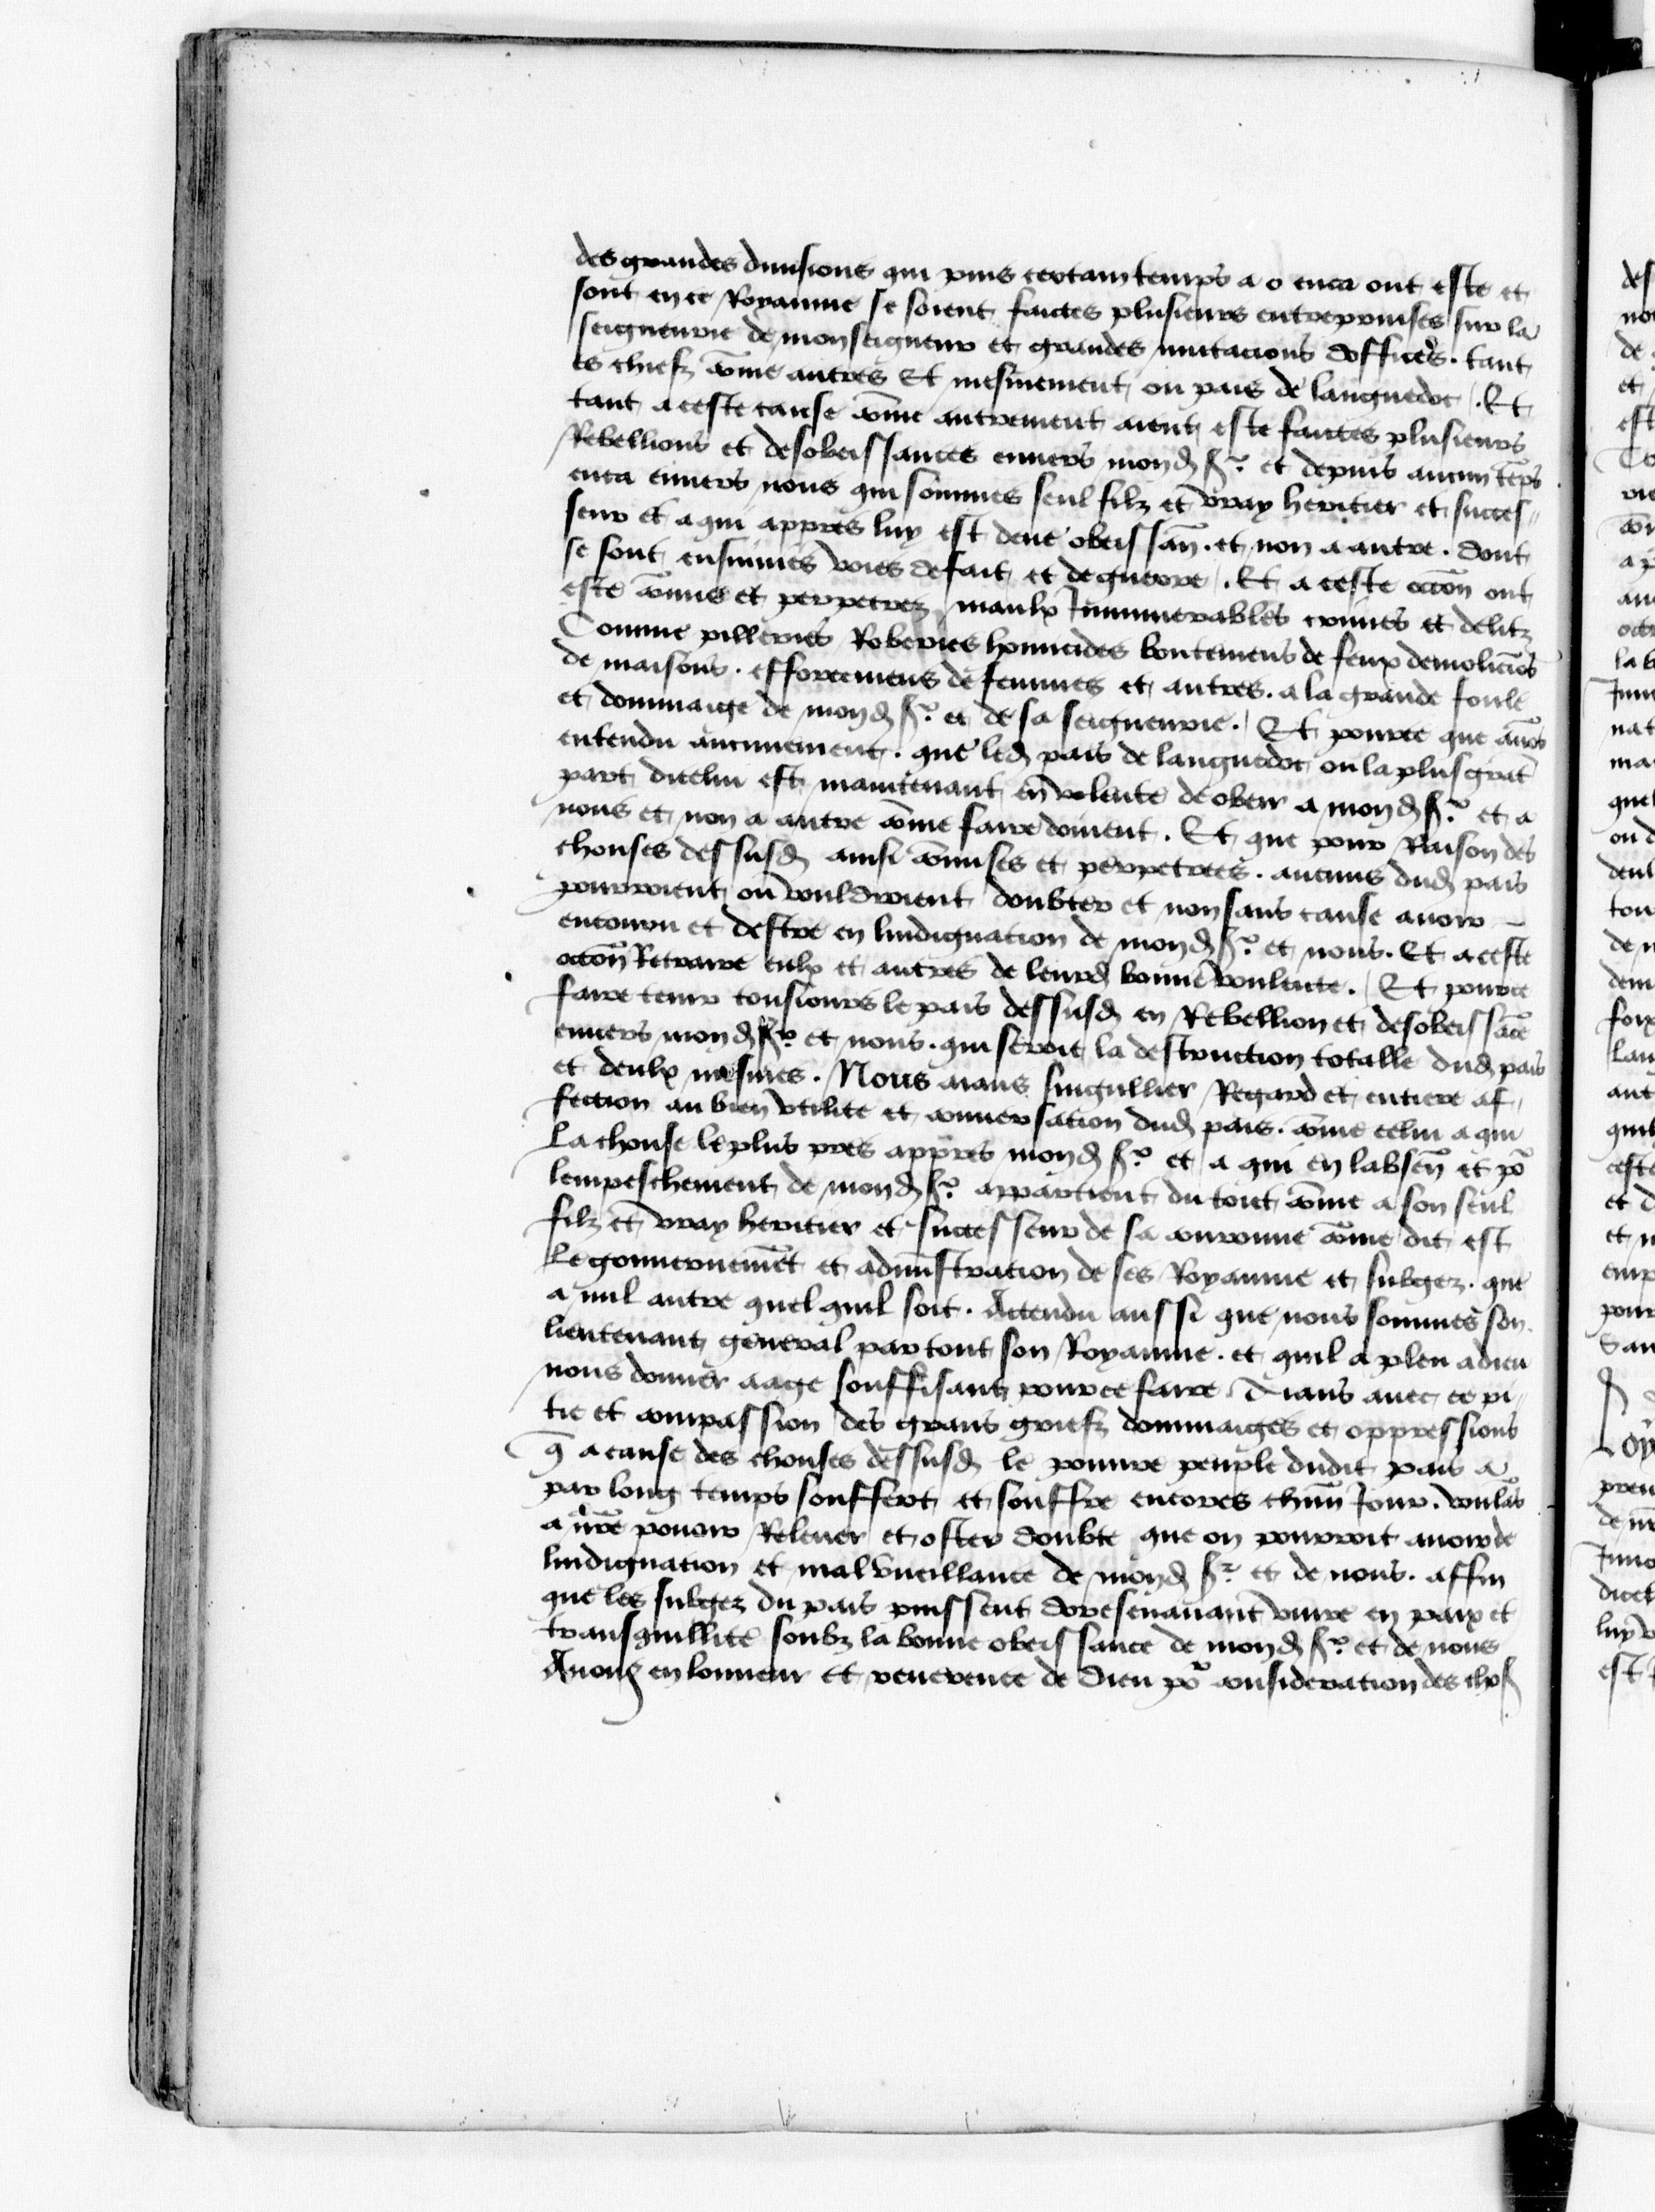 des grandes diuisions qui puis certain temps a o enca ont este et
sont en ce Royaume se soient faictes plusieurs entreprinses sur la
seigneurie de monseigneur et grandes mutacions dofficers . tant
es chiefz cōme autres Et mesmement ou pais de languedoc . Et
tant a ceste cause cōme autrement aient este faictes plusieurs
Rebellions et desobeissances enuers mond sr et depuis aucun tēps
enca enuers nous qui sommes seul filz et vray heritier et succes-
seur et a qui appres luy est deue obeissan̄ . et non a autre . dont
se sont ensuiuies voies de fait et de guerre . Et a ceste occōn ont
este cōmis et perpetrez maulx Innumerables crimes et delitz
Comme pilleries Roberies homicides boutemens de feux demoliciōs
de maisons . efforcemens de femmes et autres . a la grande foule
et dommaige de mond sr et de sa seigneurie . Et pource que auōs
entendu aucunement . que led pais de languedoc ou la plus grāt
part dicelui est maintenant en volente de obeir a mond sr et a
nous et non a autre cōme faire doiuent . Et que pour Raison des
chouses dessusd ainsi cōmises et perpetrees . aucuns dud pais
pourroient ou vouldroient doubter et non sans cause auoir
encouru et destre en lindignation de mond sr et nous . Et a ceste
occōn Retraire eulx et autres de leurd bonne voulente . Et pource
faire tenir tousiours le pais dessusd en Rebellion et desobeissāce
enuers mond sr et nous . qui seroit la destruction totalle dud pais
et deulx mesmes . Nous aians singullier Regard et entiere af-
fection au bien vtilite et conuersation dud pais . cōme celui a qui
La chouse le plus pres appres mond sr et a qui en labsen̄ et po
lempeschement de mond sr appartient du tout cōme a son seul
filz et vray heritier et successeur de sa couronne cōme dit est
Le gouuernemēt et adminstration de ses Royaume et subgez . que
a nul autre quel quil soit . Actendu aussi que nous sommes son
lieutenant general par tout son Royaume . et quil a pleu a dieu
nous donner aage souffisant pour ce faire Aians auec ce pi-
tie et compassion des grans griefz dommaiges et oppressions
q̄ a cause des chouses dessusd le pouure peuple dudit pais a
par long temps souffert et souffre encores chūn Jour . voulās
a nr̄e pouoir Releuer et oster doubte que on pourroit auoir de
lindignation et malvueillance de mond sr et de nous . affin
que les subgez du pais puissent doresenauant viure en paix et
transquillite soubz la bonne obeissance de mond sr et de nous
Auons en lonneur et reuerence de Dieu po consideration des chos